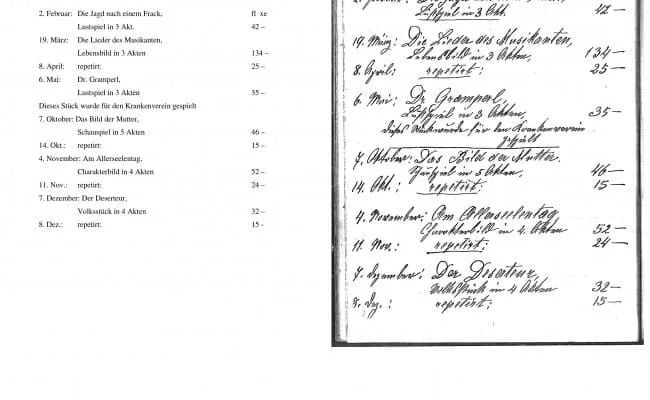 2. Februar: Die Jagd nach einem Frack, fl xe
Lustspiel in 3 Akt. 42 –
19. März: Die Lieder des Musikanten,
Lebensbild in 3 Akten 134 –
8. April: repetirt: 25 –
6. Mai: Dr. Gramperl,
Lustspiel in 3 Akten 35 –
Dieses Stück wurde für den Krankenverein gespielt
7. Oktober: Das Bild der Mutter,
Schauspiel in 5 Akten 46 –
14. Okt.: repetirt: 15 –
4. November: Am Allerseelentag,
Charakterbild in 4 Akten 52 –
11. Nov.: repetirt: 24 –
7. Dezember: Der Deserteur,
Volksstück in 4 Akten 32 –
8. Dez.: repetirt: 15 -
Lustspiel in 3 Akt. 42 —
19. März: Die Lieder des Musikanten,
Lebensbild in 3 Akten, 134 —
8. April: repetirt: 25 —
6. Mai: Dr. Gramperl,
Lustspiel in 3 Akten, 35 —
Dieses Stück wurde für den Krankenverein
gespielt
7. Oktober: Das Bild der Mutter.
Schauspiel in 5 Akten, 46 —
14. Okt.: repetirt: 15 —
4. November: Am Allerseelentag,
Charakterbild in 4 Akten 52 —
11. Nov.: repetirt: 24 —
7. Dezember: Der Deserteur,
Volksstück in 4 Akten 32 —
8. Dez.: repetirt: 15 —